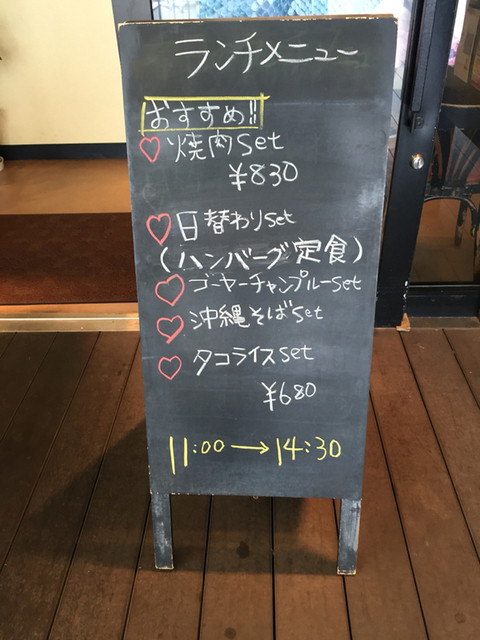 ランチメニュー
おすすめ!!
♡焼肉set
¥830
♡日替わりset
(ハンバーグ定食)
♡ゴーヤーチャンプルーset
♡沖縄そばset
♡タコライスset
¥680
11:00→14:30